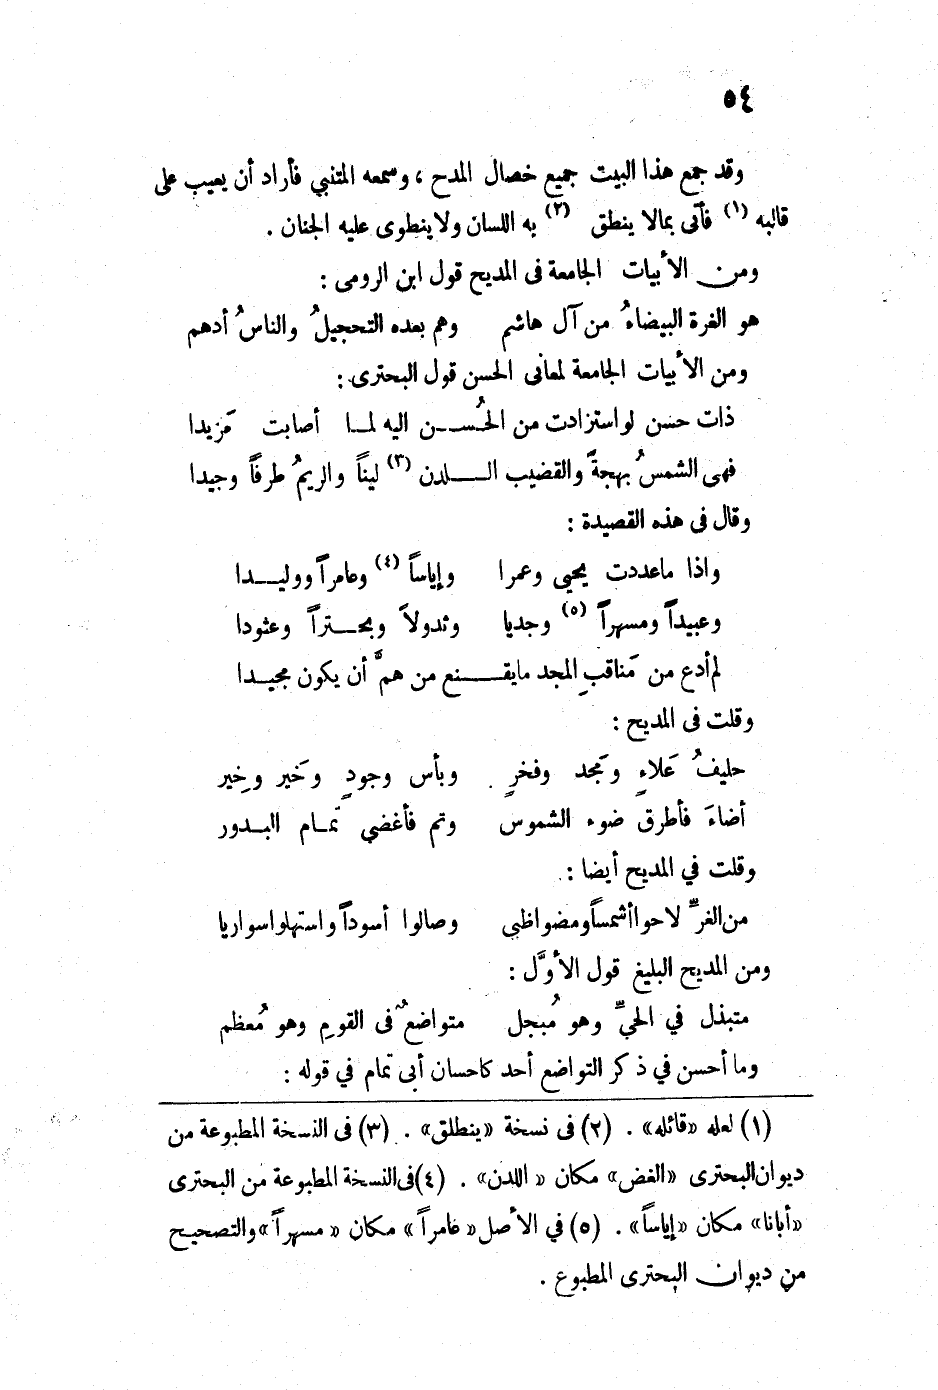 ٥٤
وقد جمع هذا البيت جميع خصال المدح ، وسمعه المتنبي فأراد أن يعيب على
قالبه (١) فأتى بمالا ينطق (٢) به اللسان ولا ينطوى عليه الجنان .
ومن الأبيات الجامعة فى المديح قول ابن الرومى :
هو الغرة البيضاءُ من آل هاشم وهم بعده التحجيلُ والناسُ أدهم
ومن الأبيات الجامعة لمعانى الحسن قول البحترى :
ذات حسن لو استزادت من الحُسـن اليه لمـا أصابت مَزيدا
فهى الشمسُ بهجةً والقضيب الـلدن (٣) لينًا والريمُ طرفاً وجيدا
وقال فى هذه القصيدة :
واذا ماعددت يحيى وعمرا وإياساً (٤) وعامراً ووليـدا
وعبيداً ومسهراً (٥) وجديا وتدولاً وبحـتراً وعثودا
لم أدع من مَناقبِ المجد مايقـنع من همَّ أن يكون مجيـدا
وقلت فى المديح :
حليفُ عَلاءٍ ومَجد وفخرٍ وبأس وجودٍ وخَير وخِير
أضاءَ فأطرق ضوء الشموس وتم فأغضي تمـام البـدور
وقلت في المديح أيضا :
من الغرِّ لاحوا أشمساً ومضوا ظبى وصالوا أسوداً واستهلوا سواريا
ومن المديح البليغ قول الأوَّل :
متبذل في الحيِّ وهو مُبجل متواضعٌ فى القوم وهو مُعظم
وما أحسن في ذكر التواضع أحد كاحسان أبى تمام في قوله :
(١) لعله «قائله» . (٢) فى نسخة «ينطلق» . (٣) فى النسخة المطبوعة من
ديوان البحترى «الغض» مكان «اللدن» . (٤) فى النسخة المطبوعة من البحترى
«أبانا» مكان «إياساً» . (٥) في الأصل «عامراً» مكان «مسهراً» والتصحيح
من ديوان البحترى المطبوع .